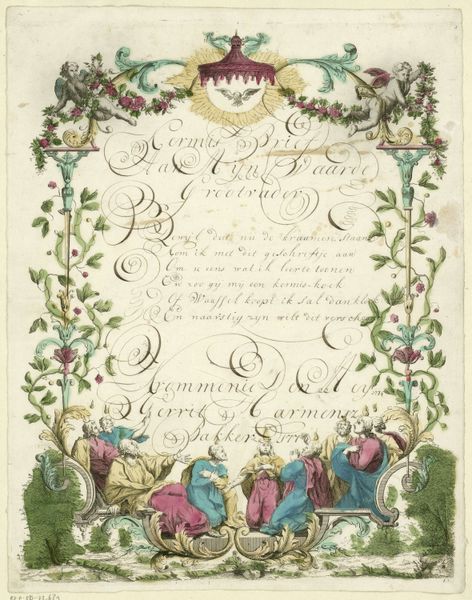 Kermis Brief
Aan Myn Waarde
Grootvader
Dewyl dat nu de kraamen staan
Kom ik met dit geschriftje aan
Om u eens wat ik leerte toonen
En zoo gy my een kermis-koek
Of Waaffel koopt ik sal danklyk
En naarstig zyn wilt dit verschoonen
Krommenie Den Mey
Gerrit Harmensz
Bakker